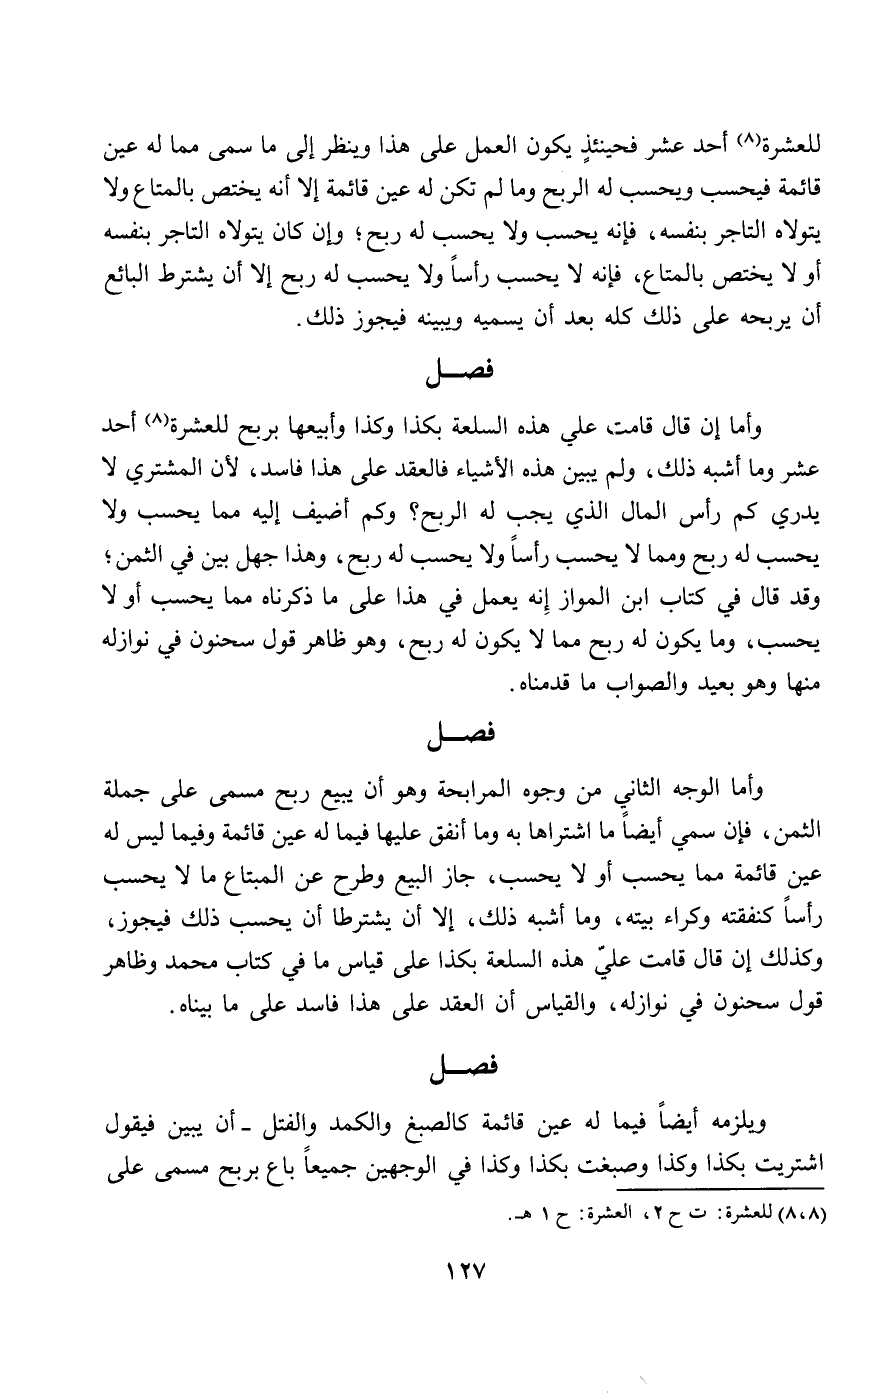 للعشرة(٨) أحد عشر فحينئذٍ يكون العمل على هذا وينظر إلى ما سمى مما له عين
قائمة فيحسب ويحسب له الربح وما لم تكن له عين قائمة إلا أنه يختص بالمتاع ولا
يتولاه التاجر بنفسه، فإنه يحسب ولا يحسب له ربح؛ وإن كان يتولاه التاجر بنفسه
أو لا يختص بالمتاع، فإنه لا يحسب رأساً ولا يحسب له ربح إلا أن يشترط البائع
أن يربحه على ذلك كله بعد أن يسميه ويبينه فيجوز ذلك.
فصــل
وأما إن قال قامت علي هذه السلعة بكذا وكذا وأبيعها بربح للعشرة(٨) أحد
عشر وما أشبه ذلك، ولم يبين هذه الأشياء فالعقد على هذا فاسد، لأن المشتري لا
يدري كم رأس المال الذي يجب له الربح؟ وكم أضيف إليه مما يحسب ولا
يحسب له ربح ومما لا يحسب رأساً ولا يحسب له ربح، وهذا جهل بين في الثمن؛
وقد قال في كتاب ابن المواز إنه يعمل في هذا على ما ذكرناه مما يحسب أو لا
يحسب، وما يكون له ربح مما لا يكون له ربح، وهو ظاهر قول سحنون في نوازله
منها وهو بعيد والصواب ما قدمناه.
فصــل
وأما الوجه الثاني من وجوه المرابحة وهو أن يبيع ربح مسمى على جملة
الثمن، فإن سمي أيضاً ما اشتراها به وما أنفق عليها فيما له عين قائمة وفيما ليس له
عين قائمة مما يحسب أو لا يحسب، جاز البيع وطرح عن المبتاع ما لا يحسب
رأساً كنفقته وكراء بيته، وما أشبه ذلك، إلا أن يشترطا أن يحسب ذلك فيجوز،
وكذلك إن قال قامت عليّ هذه السلعة بكذا على قياس ما في كتاب محمد وظاهر
قول سحنون في نوازله، والقياس أن العقد على هذا فاسد على ما بيناه.
فصــل
ويلزمه أيضاً فيما له عين قائمة كالصبغ والكمد والفتل - أن يبين فيقول
اشتريت بكذا وكذا وصبغت بكذا وكذا في الوجهين جميعاً باع بربح مسمى على
(٨،٨) للعشرة: ت ح ٢، العشرة: ح ١ هـ.
١٢٧